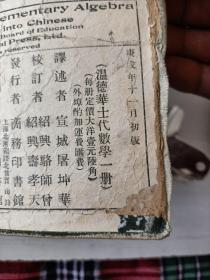 ementary Algebra
into Chinese
Board of Education
al Press, Ltd.
reserved
庚戌年十一月初版
(溫德華士代數學一冊)
(每册定價大洋壹元陸角)
(外埠酌加運費匯費)
譯述者 宣城屠坤華
校訂者 紹興駱師曾
紹興壽孝天
發行者 商務印書館